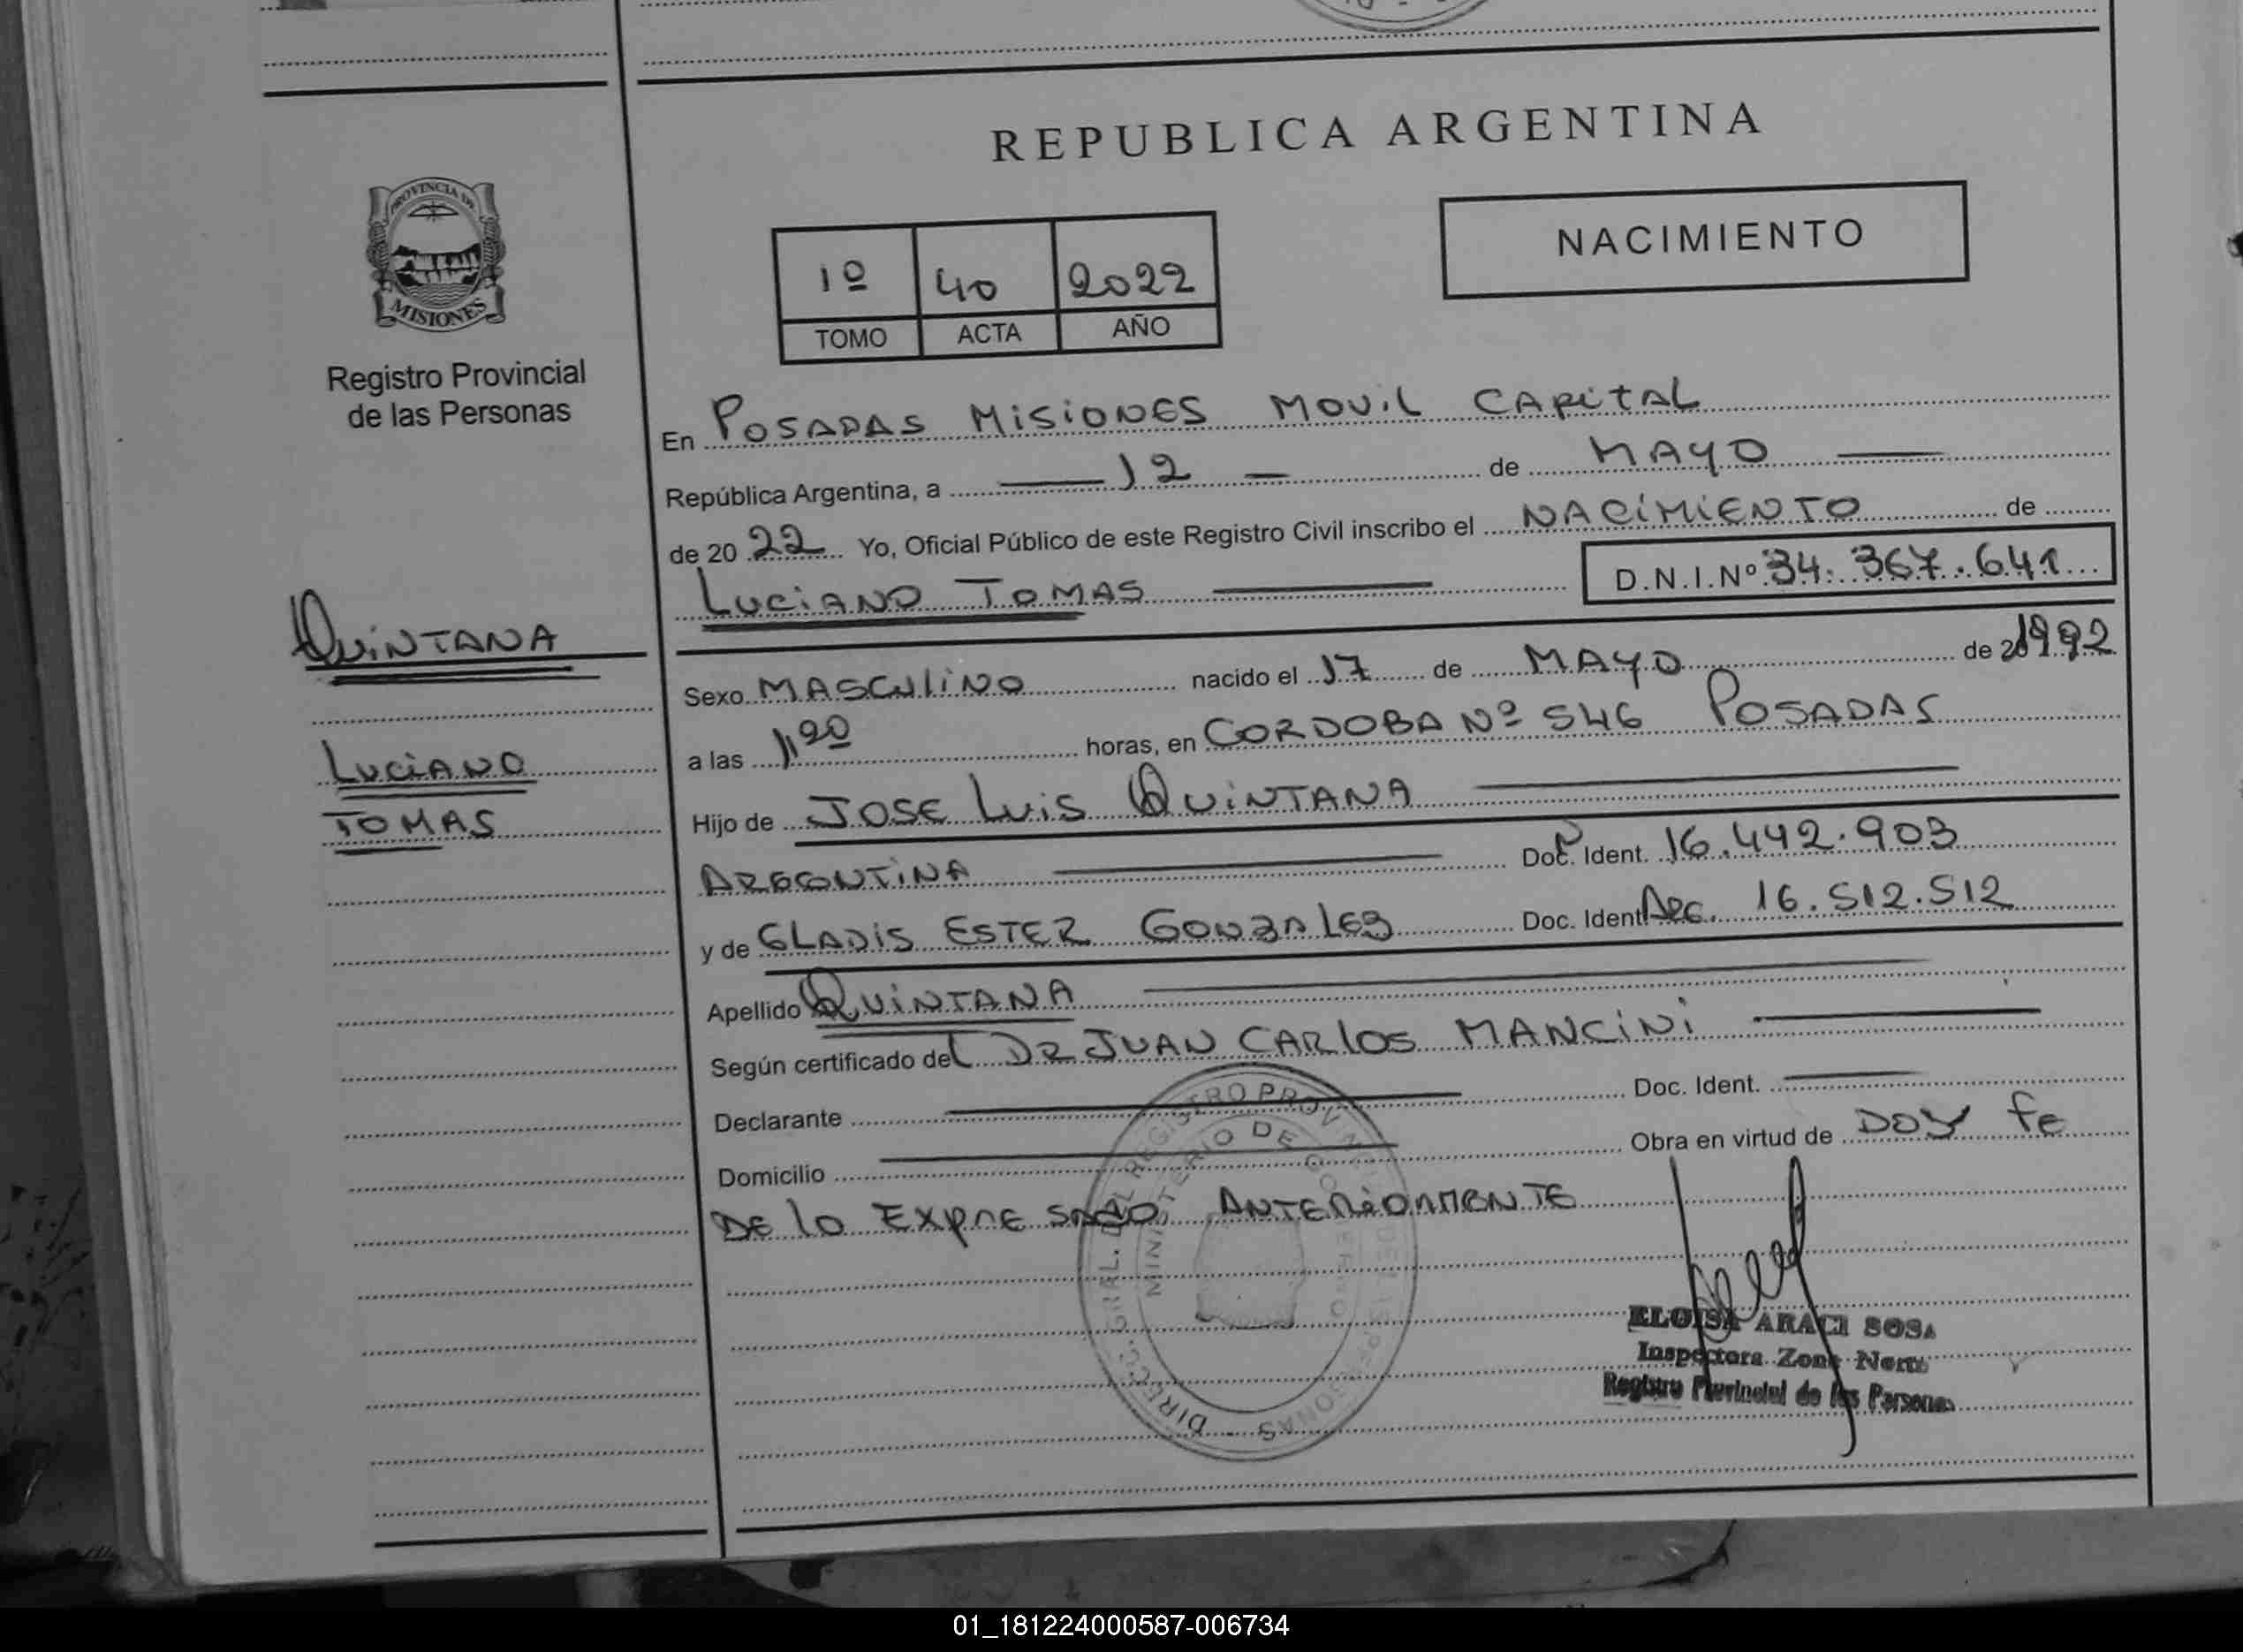 REPUBLICA ARGENTINA
NACIMIENTO
1º 40 2022
TOMO ACTA AÑO
PROVINCIA DE
MISIONES
Registro Provincial
de las Personas
En POSADAS MISIONES MOVIL CAPITAL
República Argentina, a 12 de MAYO
de 2022 Yo, Oficial Público de este Registro Civil inscribo el NACIMIENTO de
LUCIANO TOMAS D.N.I.Nº 34.367.641
QUINTANA
LUCIANO
TOMAS
Sexo MASCULINO nacido el 17 de MAYO de 1992
a las 11,20 horas, en CORDOBA Nº 546 POSADAS
Hijo de JOSE LUIS QUINTANA
ARGENTINA Doc. Ident. 16.442.903
y de GLADIS ESTER GONZALEZ Doc. Ident. ARG. 16.512.512
Apellido QUINTANA
Según certificado del DR JUAN CARLOS MANCINI
Declarante Doc. Ident.
Domicilio Obra en virtud de DOY FE
DE LO EXPRESADO ANTERIORMENTE
DIRECC. GRAL. DEL REGISTRO PROVINCIAL DE LAS PERSONAS
MINISTERIO DE GOBIERNO
ELOISA ARACI SOSA
Inspectora Zona Norte
Registro Provincial de las Personas
01_181224000587-006734